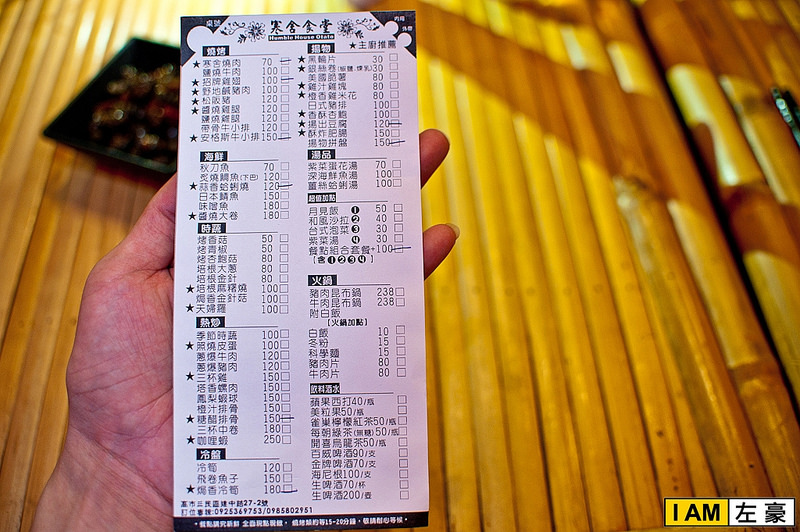 桌號
寒舍食堂
Humble House Olata
內用
外帶
燒烤
★寒舍燒肉 70
鹽燒牛肉 100
★招牌雞翅 100
★野地鹹豬肉 100
★松阪豬 120
★醬燒雞腿 120
鹽燒雞腿 120
帶骨牛小排 120
★安格斯牛小排 150
海鮮
秋刀魚 70
炙燒鯛魚(下巴) 120
★蒜香蛤蜊燒 120
日本鯖魚 150
味噌魚 180
★醬燒大卷 180
時蔬
烤香菇 50
烤青椒 50
烤杏鮑菇 80
培根大蔥 80
培根金針 80
★培根麻糬燒 100
焗香金針菇 100
★天婦羅 100
熱炒
季節時蔬 100
★照燒皮蛋 100
蔥爆牛肉 120
蔥爆豬肉 120
★三杯雞 150
塔香螺肉 150
鳳梨蝦球 150
橙汁排骨 150
★糖醋排骨 150
三杯中卷 180
★咖哩蝦 250
冷盤
冷筍 120
飛卷魚子 150
★焗香冷筍 180
揚物 ★主廚推薦
★黑輪片 30
★銀絲卷(椒鹽、煉乳) 30
美國脆薯 80
★雞汁雞塊 80
★橙香雞米花 80
日式豬排 100
香酥杏鮑 100
★揚出豆腐 120
★酥炸肥腸 150
揚物拼盤 150
湯品
紫菜蛋花湯 70
深海鮮魚湯 100
薑絲蛤蜊湯 100
超值加點
月見飯 ❶ 50
和風沙拉❷ 40
台式泡菜❸ 30
紫菜湯 ❹ 30
餐點組合套餐+100
【含❶❷❸❹】
火鍋
豬肉昆布鍋 238
牛肉昆布鍋 238
附白飯
【火鍋加點】
白飯 10
冬粉 15
科學麵 15
豬肉片 80
牛肉片 80
飲料酒水
蘋果西打40/瓶
美粒果50/瓶
雀巢檸檬紅茶50/瓶
每朝綠茶(無糖)50/瓶
開喜烏龍茶50/瓶
百威啤酒90/支
金牌啤酒70/支
海尼根100/支
生啤酒70/杯
生啤酒200/壺
高市三民區建中路27-2號
訂位專線:0925369753/0985802951
•餐點講究新鮮 全面現點現做，燒烤類約等15-20分鐘，敬請耐心等候•
I AM 左豪